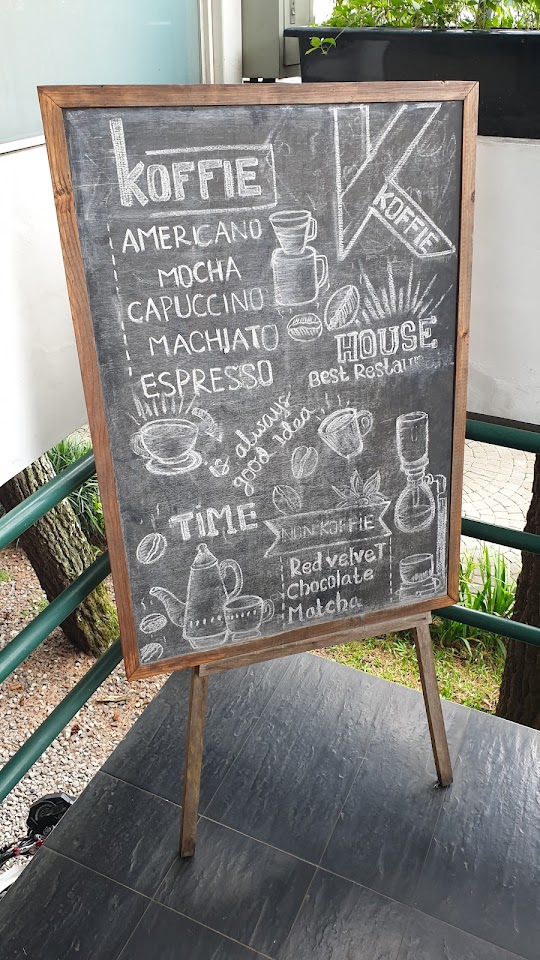 KOFFIE
AMERICANO
MOCHA
CAPUCCINO
MACHIATO
ESPRESSO
K
KOFFIE
HOUSE
Best
is always
good idea
TIME
NON KOFFIE
Red velveT
Chocolate
Matcha